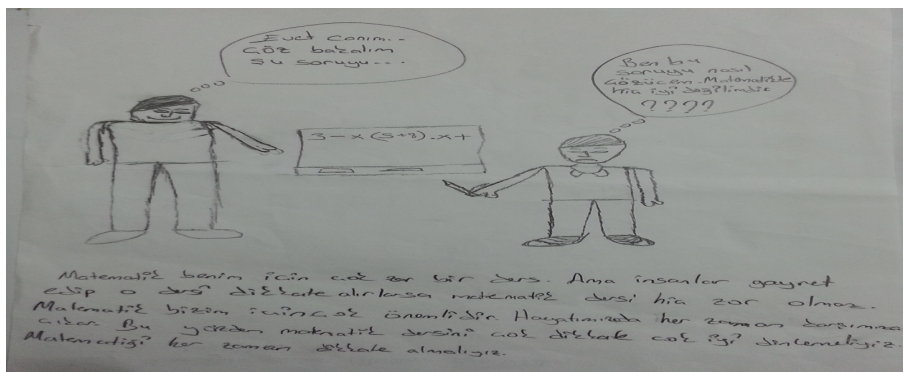 Evet canım..
Çöz bakalım
şu soruyu...
Ben bu
soruyu nasıl
çözücem. Matematikte
hiç iyi değilimdir
????
3-x(5+8).x+
Matematik benim için çok zor bir ders. Ama insanlar gayret
edip o dersi dikkate alırlarsa matematik dersi hiç zor olmaz.
Matematik bizim için çok önemlidir. Hayatımızda her zaman karşımıza
çıkar. Bu yüzden matmatik dersini çok dikkate çok iyi dinlemeliyiz.
Matematiği her zaman dikkate almalıyız.